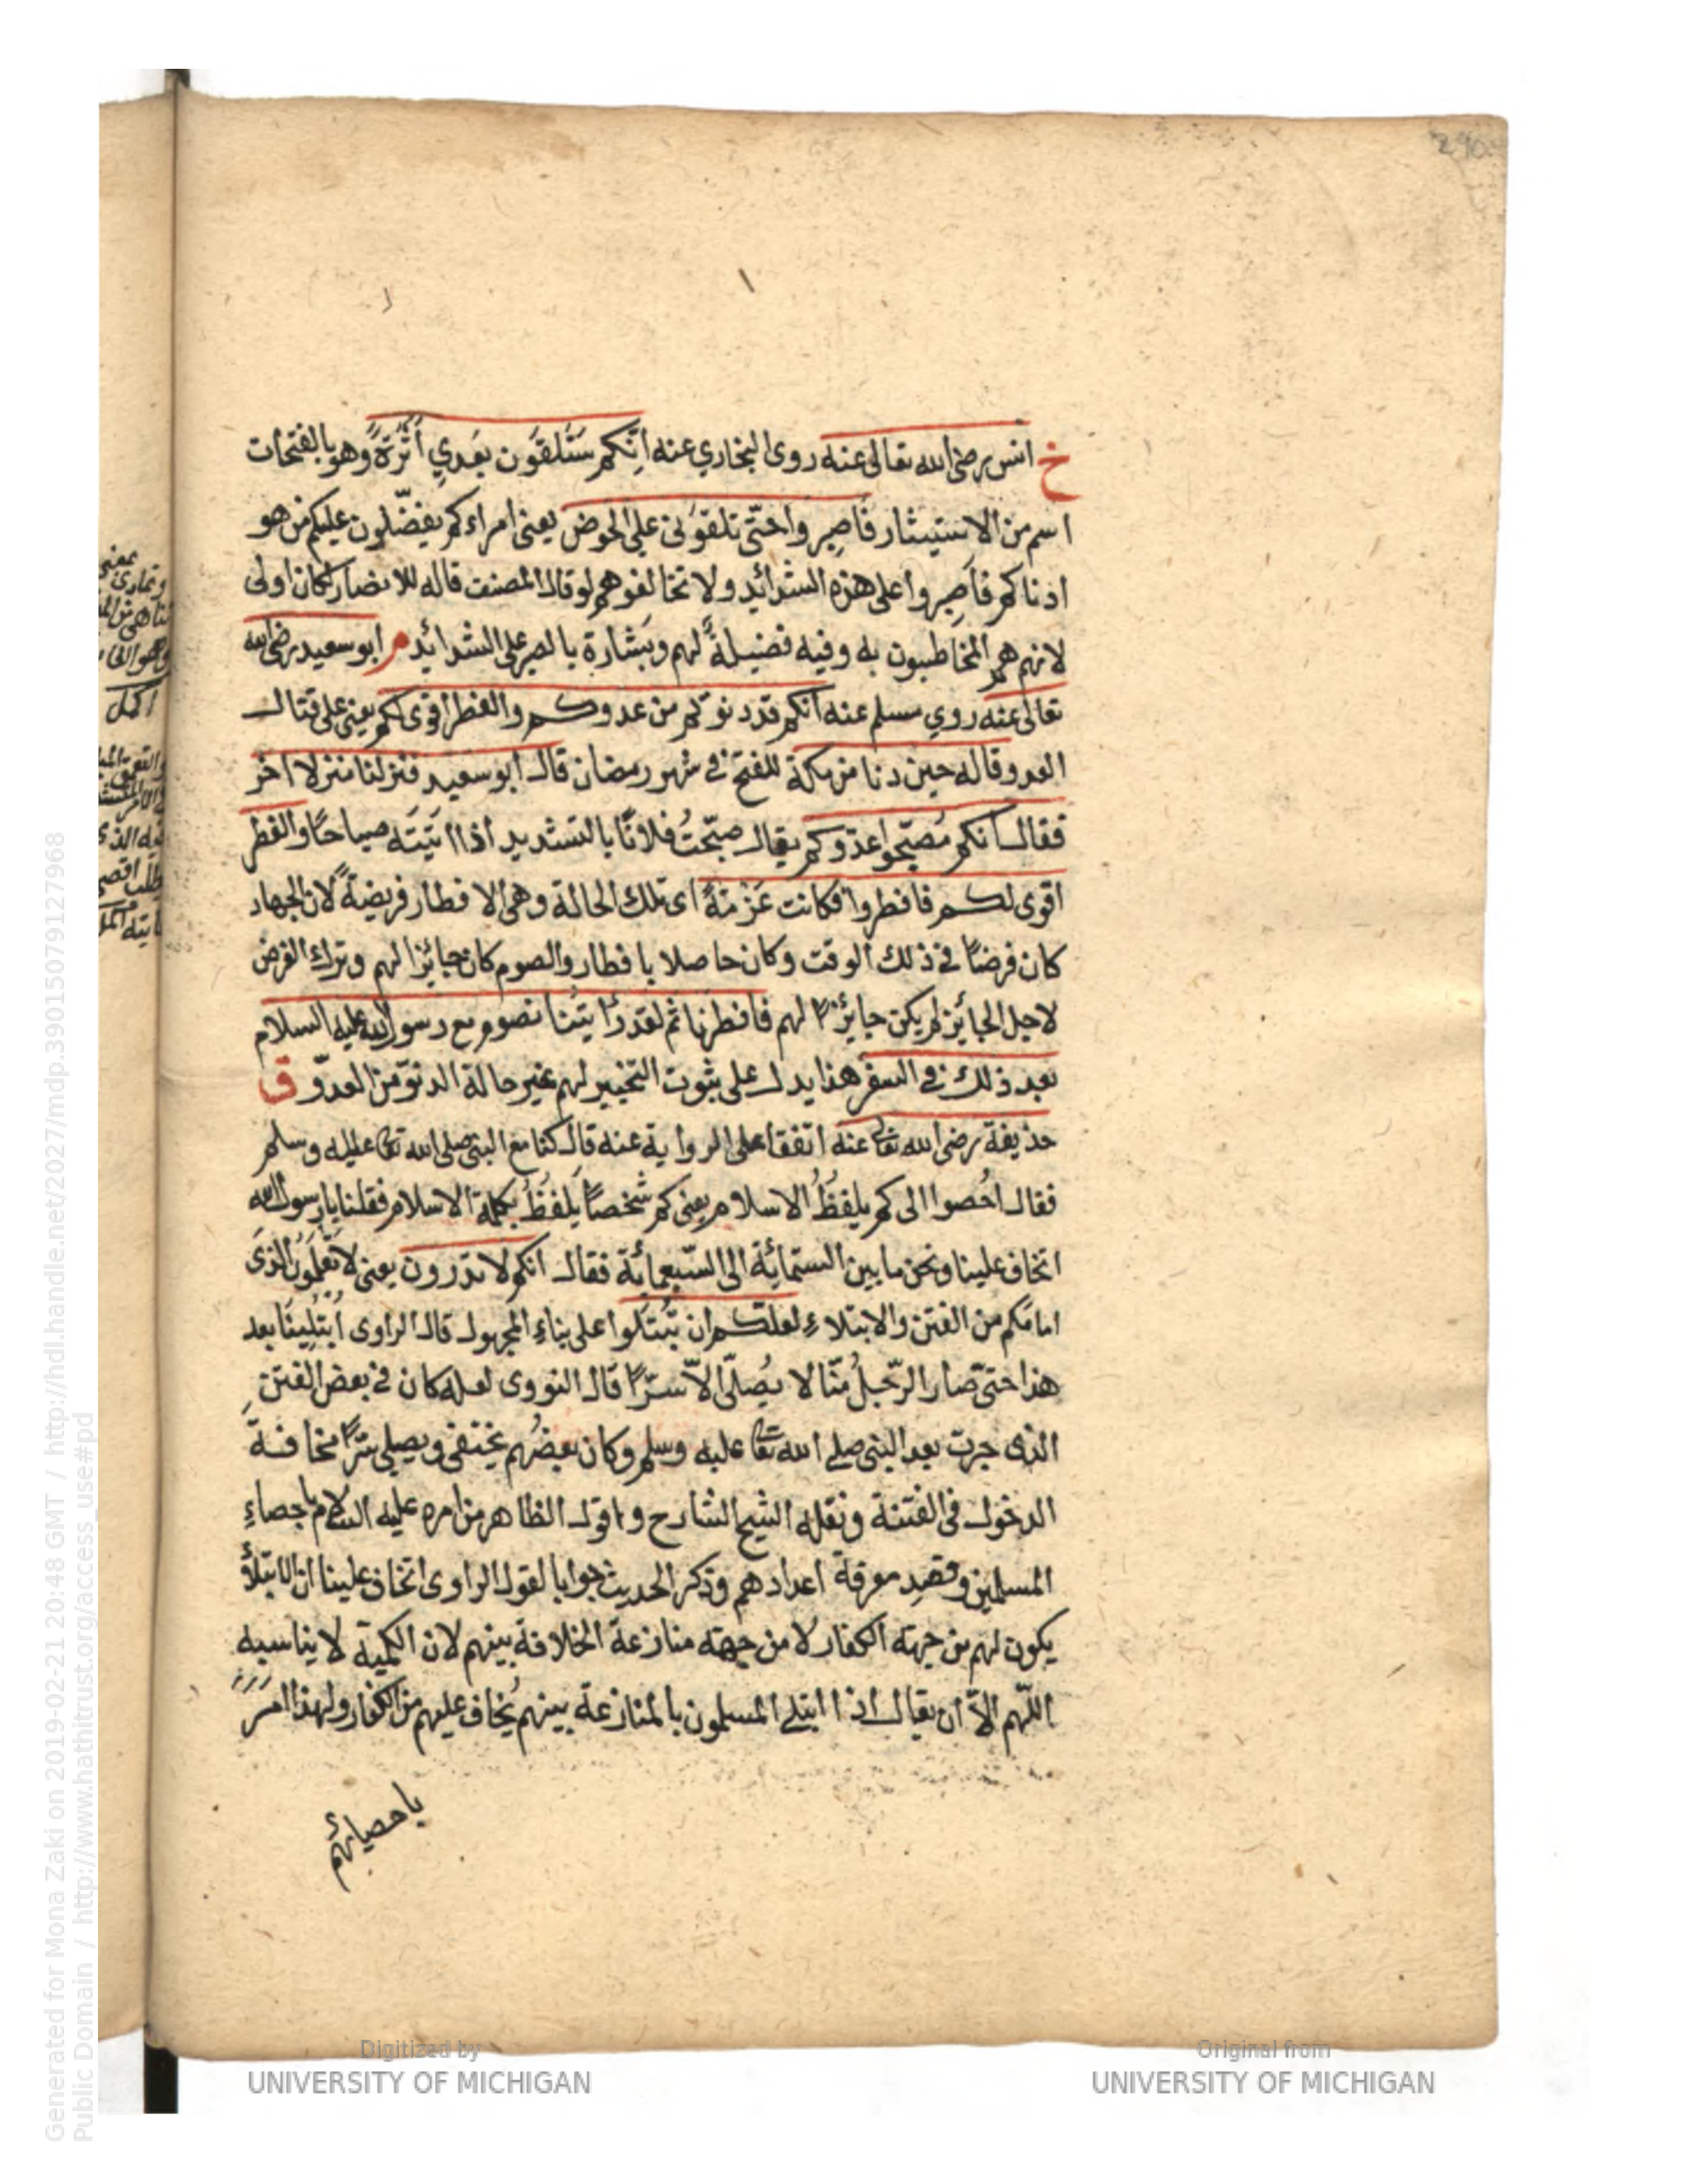 290
خ انس رضى الله تعالى عنه روى البخاري عنه انكم ستَلقَون بعدي أَثَرَةً وهو بالفتحات
اسم من الاستيثار فاصبروا حتّى تلقونى على الحوض يعنى امراءكم يفضّلون عليكم من هو
ادناكم فاصبروا على هذه الشدائد ولا تخالفوهم لو قال المصنف قاله للانصار لكان اولى
لانهم هم المخاطبون به وفيه فضيلةً لهم وبشارة بالصبر على الشدائد م ابو سعيد رضى الله
تعالى عنه روي مسلم عنه انكم قد دنوتم من عدوكم والفطر أقوى لكم يعنى على قتال
العدو قاله حين دنا من مكة للفتح في شهر رمضان قال ابو سعيد فنزلنا منزلا اخر
فقال انكم مُصَبِّحوا عدوكم يقال صبّحتُ فلانًا بالتشديد اذا اَتيَته صباحًا والفطر
اقوى لكم فافطروا فكانت عَزْمَةً اى تلك الحالة وهى الافطار فريضةً لان الجهاد
كان فرضًا في ذلك الوقت وكان حاصلا بافطار والصوم كان جائزا لهم وترك الفرض
لاجل الجائز لم يكن جايزًا لهم فافطرنا ثم لقد رَايتنا نصوم مع رسول الله عليه السلام
بعد ذلك في السفر هذا يدل على ثبوت التخيير لهم غير حالة الدنوّ من العدوّ ق
حذيفة رضى الله تعا عنه اتفقا على الرواية عنه قال كنا مع النبى صلى الله تعا عليه وسلم
فقال احُصوا الى كم يلفظُ الاسلام يعنى كم شخصًا يَلفظُ بكلمة الاسلام فقلنا يا رسول الله
اتخاف علينا ونحن ما بين الستمائة الى السّبعمائة فقال انكم لا تدرون يعنى لا تَعلمُون الذى
امامكم من الفتن والابتلاء لعلكم ان تُبتَلوا على بناء المجهول قال الراوى ابتُلِينَا بعد
هذا حتّى صار الرّجلُ منّا لا يُصلّى الّا سرًّا قال النووى لعله كان في بعض الفتن
الذى جرت بعد النبى صلى الله تعا عليه وسلم وكان بعضُهم يختفى ويصلى سرًّا مخافة
الدخول فى الفتنة ونقله الشيخ الشارح واقول الظاهر من امره عليه السلام باحصاء
المسلمين وقصد معرفة اعدادهم وذكر الحديث جوابا لقول الراوى اتخاف علينا ان الابتلاء
يكون لهم من جهة الكفار لا من جهة منازعة الخلافة بينهم لان الكمية لا يناسبه
اللّهم الّا ان يقال اذا ابتلى المسلمون بالمنازعة بينهم يُخاف عليهم من الكفار ولهذا امَرَ
باحصائهم
Generated for Mona Zaki on 2019-02-21 20:48 GMT / http://hdl.handle.net/2027/mdp.39015079127968
Public Domain / http://www.hathitrust.org/access_use#pd
Digitized by
UNIVERSITY OF MICHIGAN
Original from
UNIVERSITY OF MICHIGAN